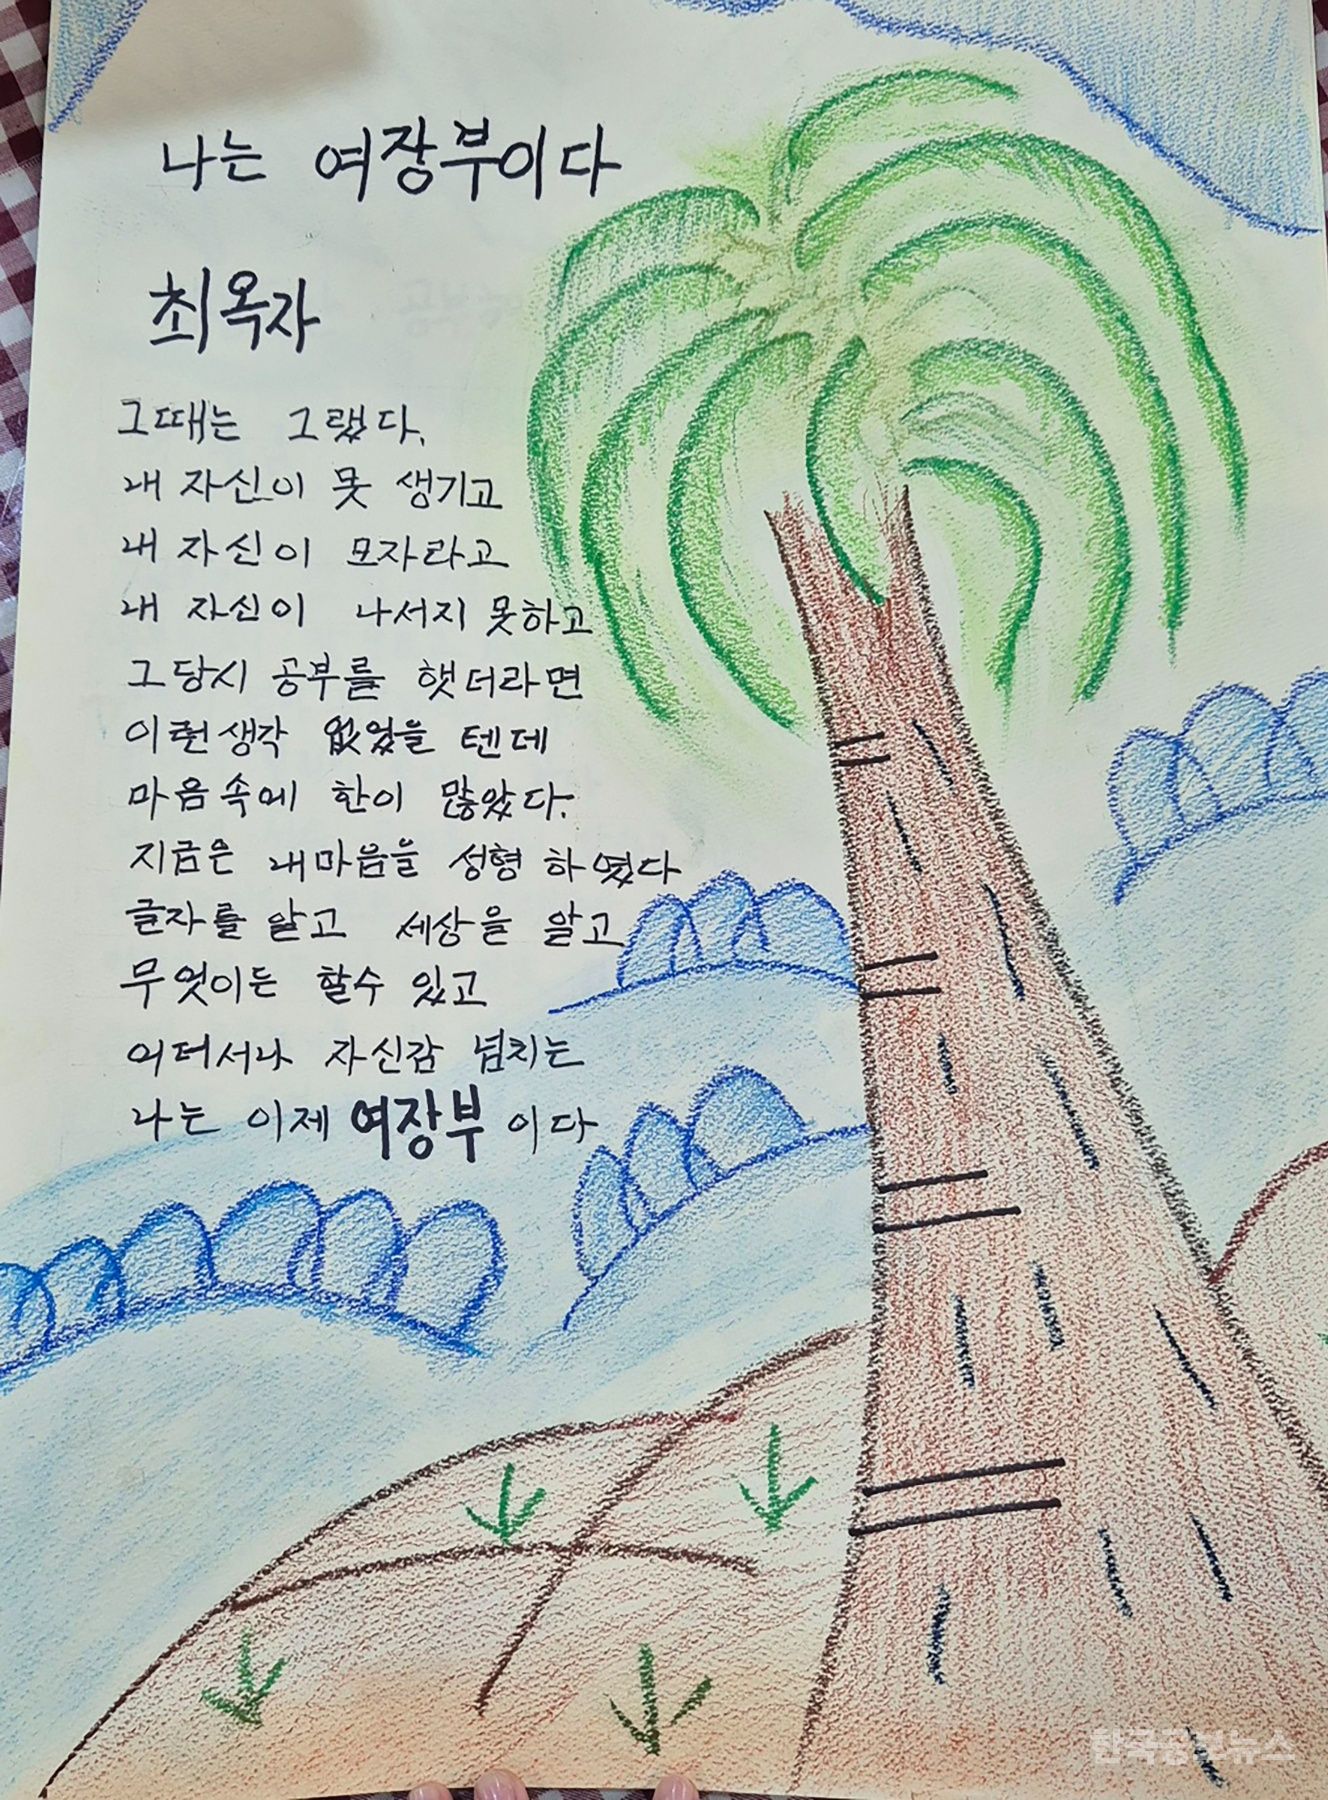 나는 여장부이다
최옥자
그때는 그랬다.
내 자신이 못 생기고
내 자신이 모자라고
내 자신이 나서지 못하고
그당시 공부를 햇더라면
이런생각 없었을 텐데
마음속에 한이 많았다.
지금은 내마음을 성형 하였다
글자를 알고 세상을 알고
무엇이든 할수 있고
어더서나 자신감 넘치는
나는 이제 여장부 이다
한국공보뉴스